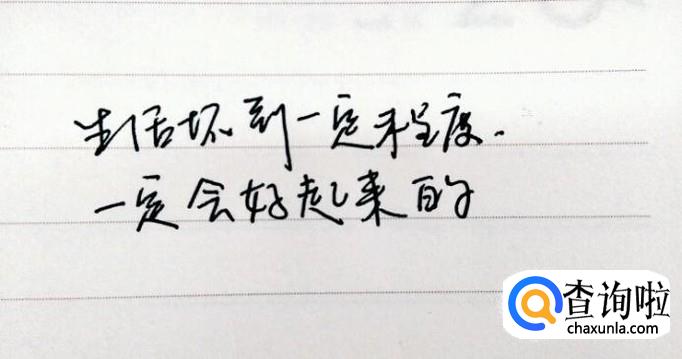 生活坏到一定程度.
一定会好起来的
查询啦
chaxunla.com